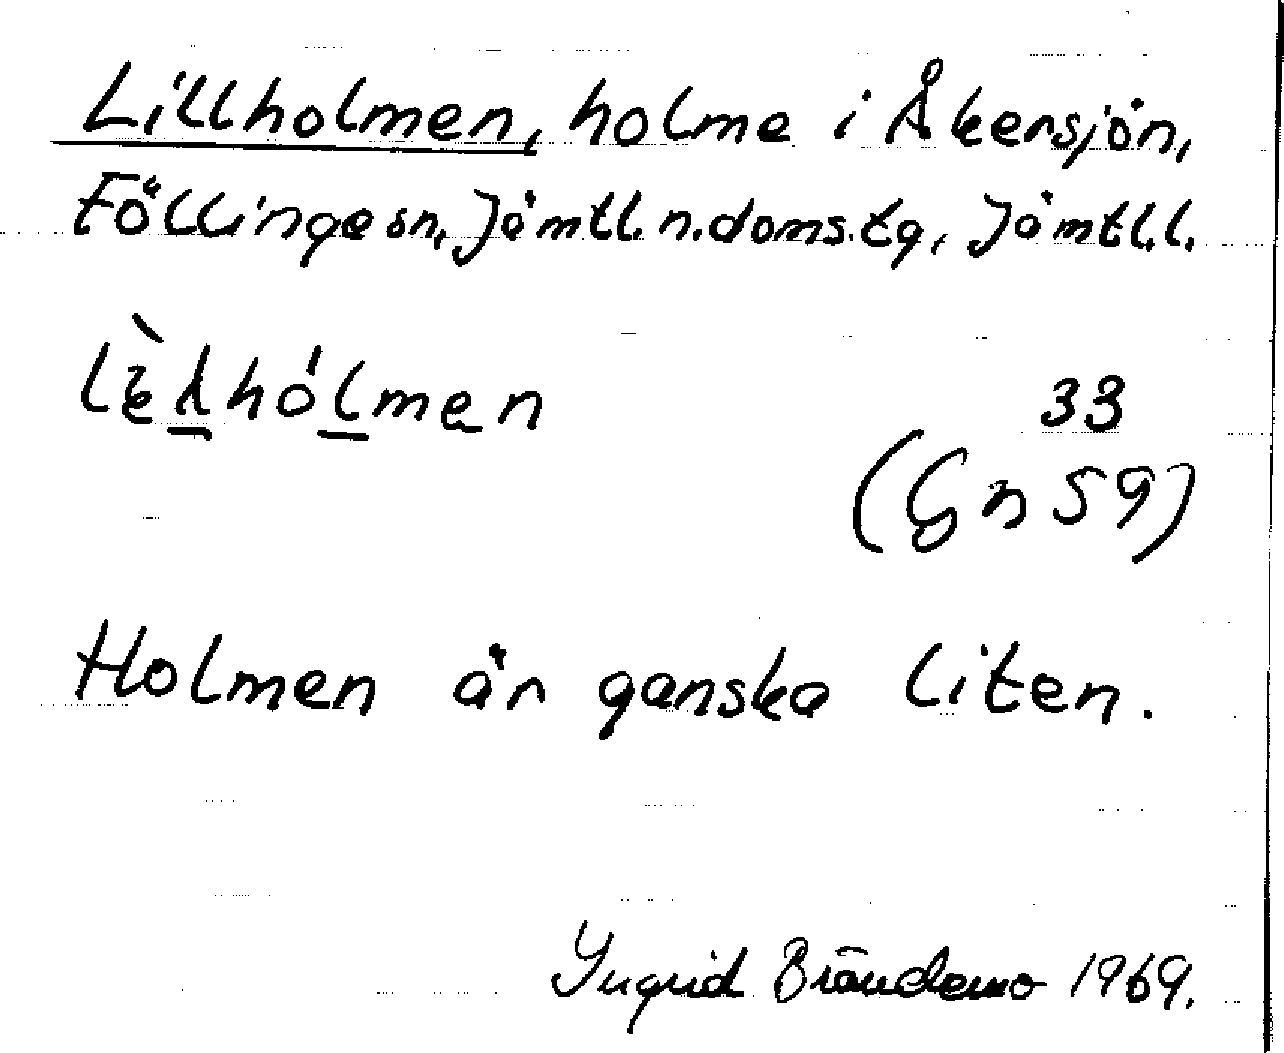 Lillholmen, holme i Åkersjön,
Föllinge sn, Jämtl. n. doms. tg, Jämtl. l.
33
(Gn 59)
Holmen är ganska liten.
Ingrid Brändemo 1969.